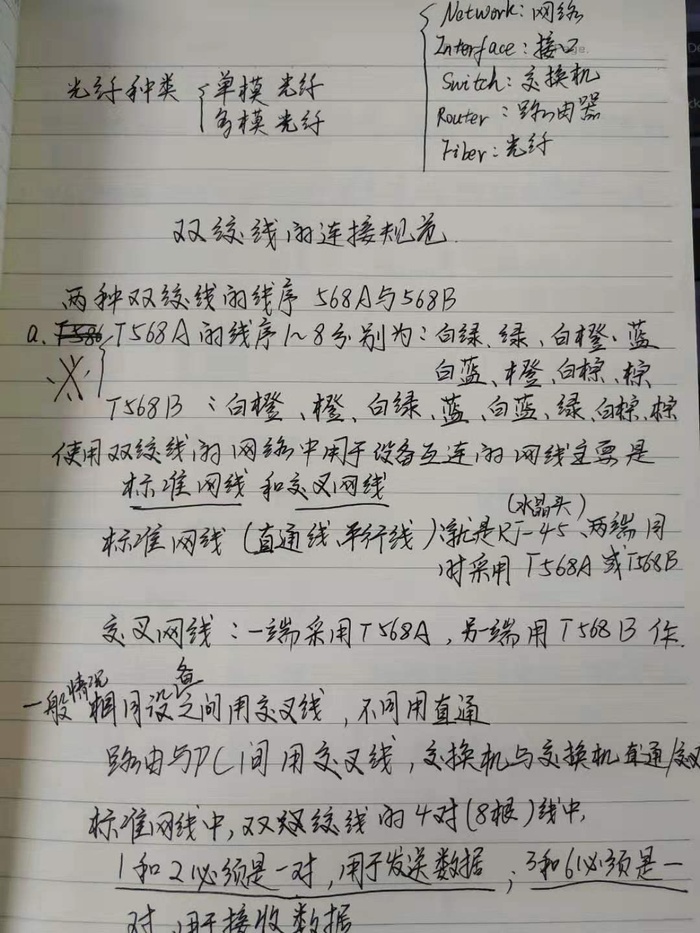 Network: 网络
Interface: 接口
Switch: 交换机
Router: 路由器
Fiber: 光纤
光纤种类 单模光纤
多模光纤
双绞线的连接规范.
两种双绞线的线序 568A与568B
a. T568A的线序1~8分别为: 白绿、绿、白橙、蓝
白蓝、橙、白棕、棕
T568B: 白橙、橙、白绿、蓝、白蓝、绿、白棕、棕
使用双绞线的网络中用于设备互连的网线主要是
标准网线和交叉网线
(水晶头)
标准网线(直通线、平行线): 就是RJ-45、两端同
时采用T568A或T568B
交叉网线: 一端采用T568A, 另一端用T568B作.
一般情况相同设备之间用交叉线, 不同用直通
路由与PC间用交叉线, 交换机与交换机直通/交叉
标准网线中, 双绞线的4对(8根)线中,
1和2必须是一对, 用于发送数据; 3和6必须是一
对, 用于接收数据